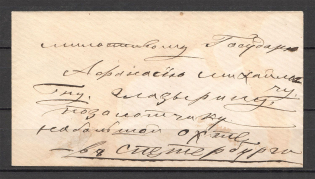 милостивому Государю
Афанасію Михайлычу.
Гну. Глазырину.
позолотчику
на большой охте
въ С. петербурге